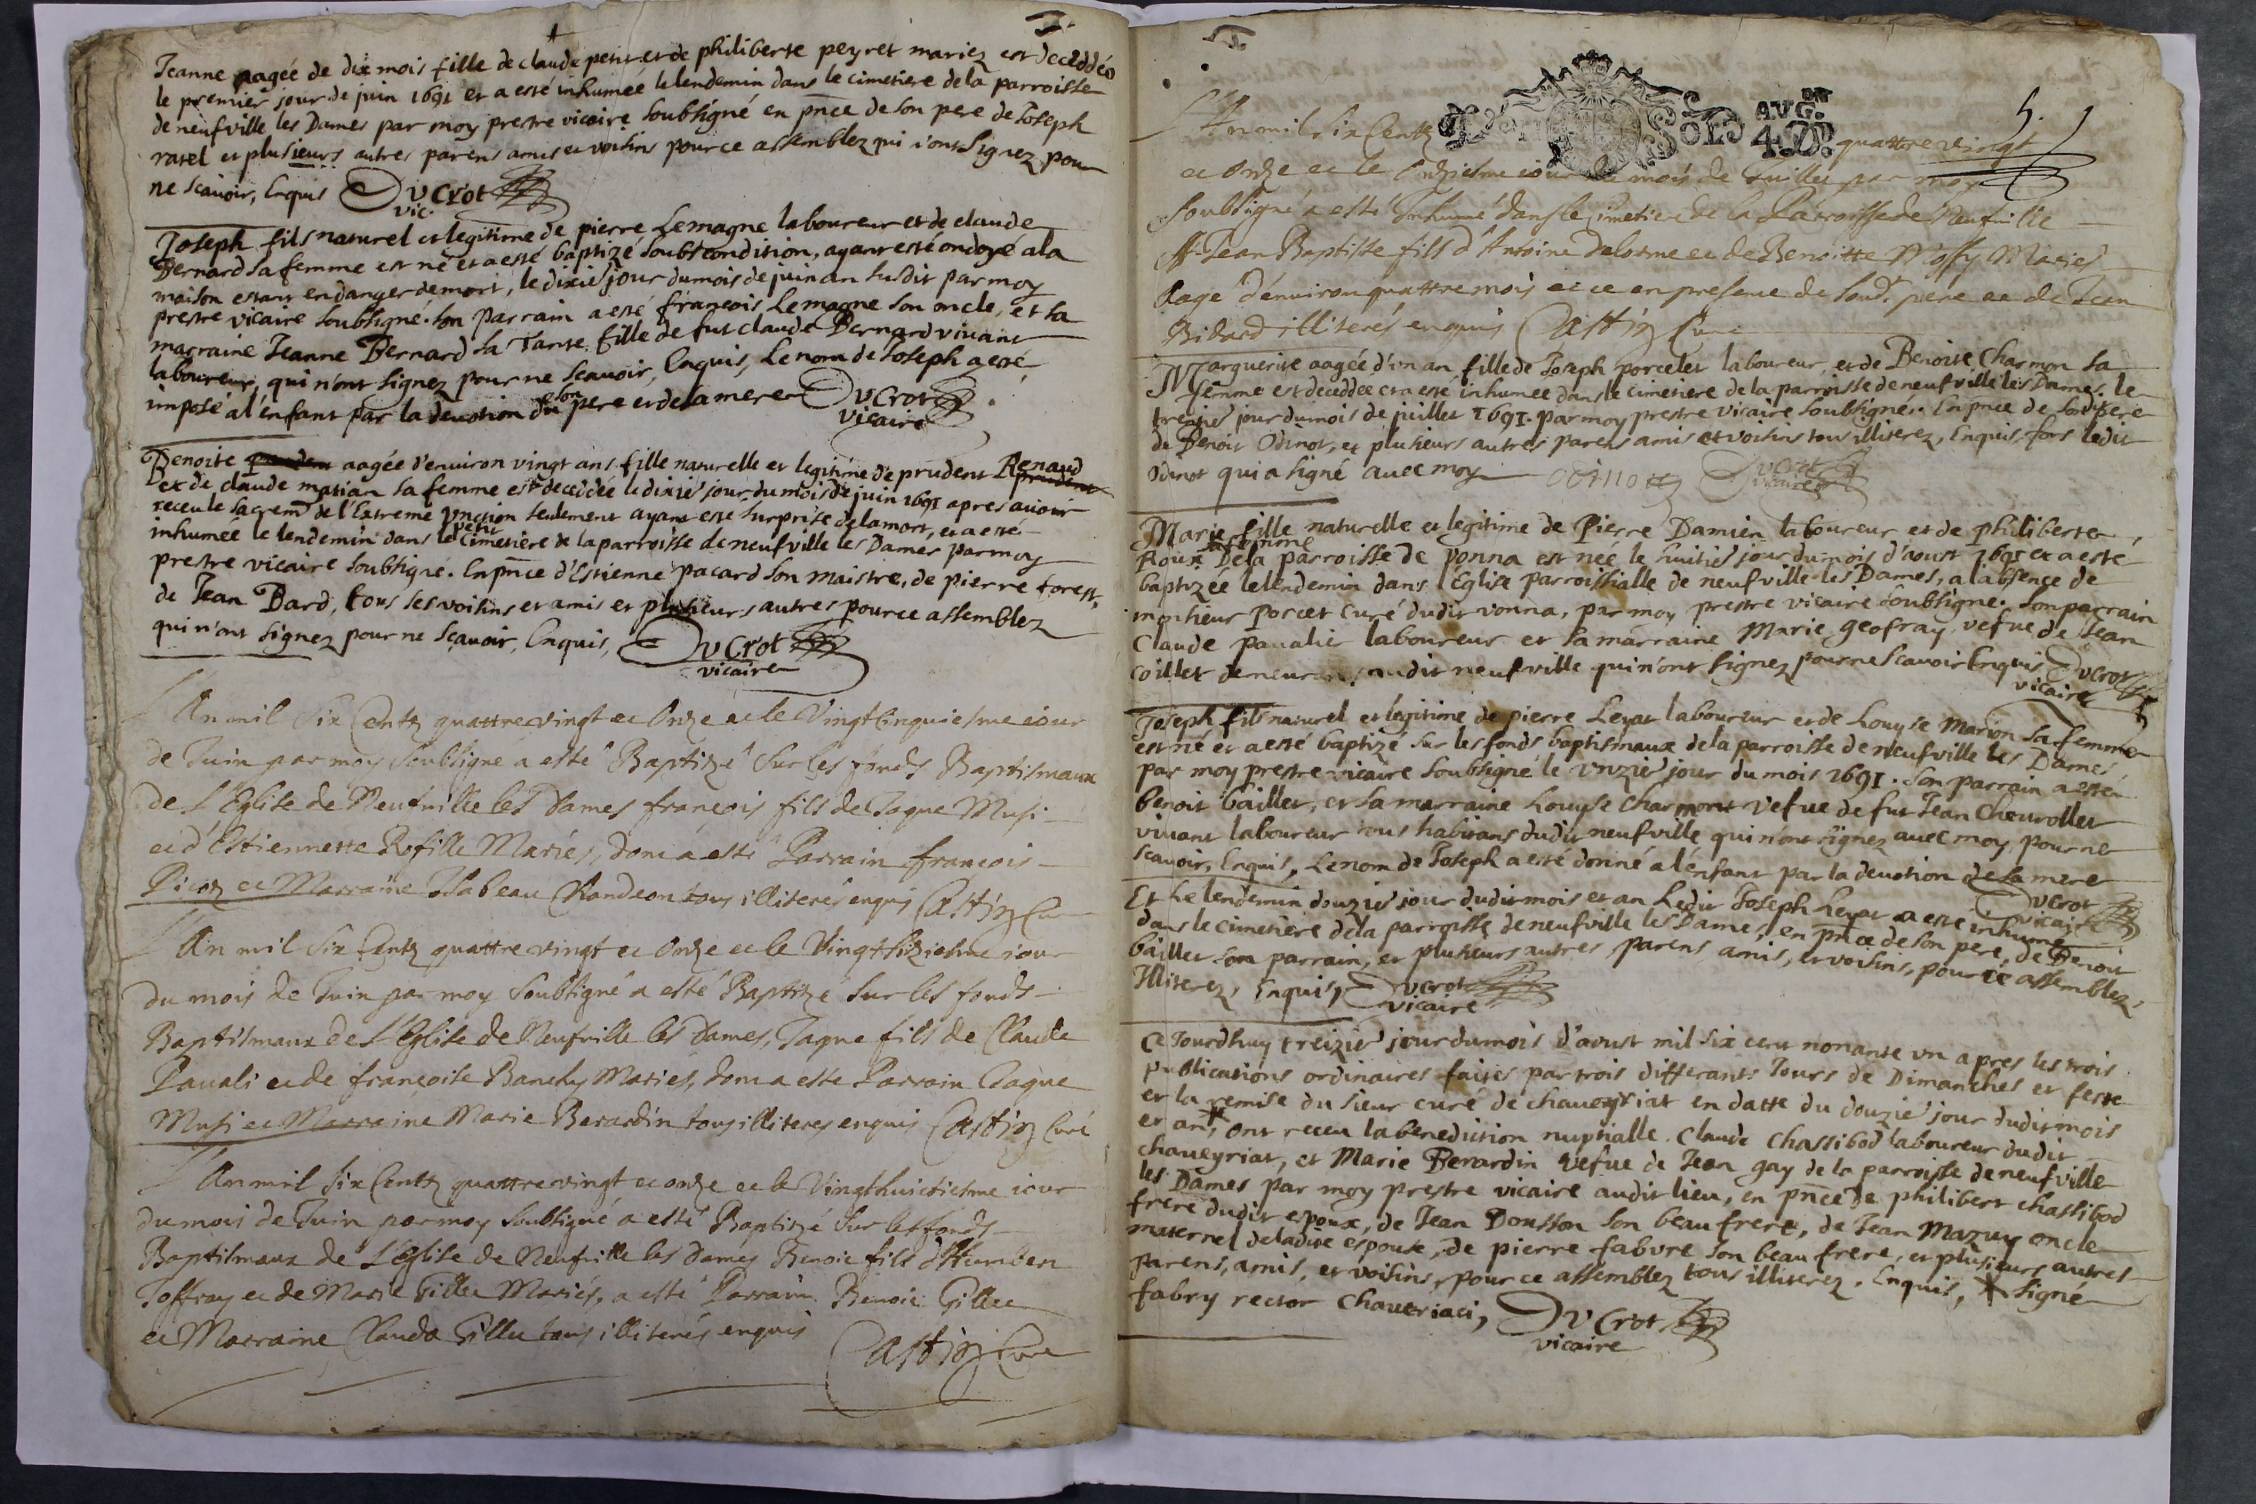 Jeanne aagée de dix mois fille de claude petit et de philiberte peyret mariez est deceddée
le premier jour de juin 1691 et a esté inhumée le lendemin dans le cimetiere de la parroisse
de neufville les Dames par moy prestre vicaire soubsigné en pnce de son pere de Joseph
ravel et plusieurs autres parens amis et voisins pour ce assemblez qui n'ont signez pour
ne scavoir, Enquis Ducrot
vic.
Joseph fils naturel et legitime de pierre Lemagne laboureur et de claude
Bernard sa femme est né et a esté baptizé soubs condition, ayant esté ondoyé a la
maison estant en danger de mort, le dixie jour du mois de juin an susdit par moy
prestre vicaire soubsigné. Son parrain a esté françois Lemagne son oncle, et sa
marraine Jeanne Bernard sa Tante fille de fut claude Bernard vivant
laboureur, qui n'ont signez pour ne scavoir, Enquis, Le nom de Joseph a esté
imposé a l'enfant par la devotion de son pere et de sa mere Ducrot
vicaire
Benoite aagée d'environ vingt ans fille naturelle et legitime de prudent Renaud
et de claude matian sa femme est deceddée le dixie jour du mois de juin 1691 apres avoir
receu le sacremt de l'Extreme Vnction seulement ayant esté surprise de la mort, et a esté
inhumée le lendemin dans le petit cimetiere de la parroisse de neufville les Dames par moy
prestre vicaire soubsigné. En pnce d'Estienne pacard son maistre, de pierre forest,
de Jean Bard, tous ses voisins et amis et plusieurs autres pour ce assemblez
qui n'ont signez pour ne sçavoir, Enquis, Ducrot
vicaire
L'An mil Six Centz quattre vingt et Onze et le Vingt Cinquiesme iour
de Juin par moy Soubsigne a esté Baptizé Sur les fonds Baptismaux
de L'Eglise de Neufville les Dames françois fils de Jaque Musi
et d'Estiennette Rofille Mariés, dont a esté Parrain françois
et Marraine Isabeau Chandeon tous illiterés enquis Castin Curé
L'An mil Six Centz quattre vingt et Onze et le Vingt Siziesme iour
du mois de Juin par moy Soubsigné a esté Baptizé Sur les fonds
Baptismaux de L'Eglise de Neufville les Dames, Jaque fils de Claude
Pavali et de françoise Banchy Mariés, dont a esté Parrain Jaque
Musi et Marraine Marie Berardin tous illiteres enquis Castin Curé
L'An mil Six Centz quattre vingt et onze et le Vingt huictiesme iour
du mois de Juin par moy Soubsigné a esté Baptizé Sur les fonds
Baptismaux de L'Eglise de Neufville les Dames Benoit fils d'Humbert
Joffray et de Marie Gillet Mariés, a esté Parrain Benoit Gillet
et Marraine Clauda Gillet tous illiterés enquis Castin Curé
AUGon
Sols 4.D.
5.
L'An mil Six Centz quattre vingt
et Onze et le Onziesme iour du mois de Juillet par moy
Soubsigné a esté Inhumé dans le Cimetiere de la Parroisse de Neufville
Jean Baptiste fils d'Antoine Delorme et de Benoitte Mossy Mariés
Aagé d'environ quattre mois et ce en presence de Sond. pere et de Jean
Bidard illiterés enquis Castin Curé
Marguerite aagée d'un an, fille de Joseph porcelet laboureur, et de Benoite Charmon sa
femme est deceddée et a esté inhumée dans le cimetiere de la parroisse de neufville les Dames, le
treizie jour du mois de juillet 1691. par moy prestre vicaire soubsigné. En pnce de sondit pere
de Benoit Odinot, et plusieurs autres parens amis et voisins tous illiterez, Enquis, fors ledit
Odinot qui a signé avec moy odinot Ducrot
vicaire
Marie fille naturelle et legitime de Pierre Damien laboureur et de philiberte
Roux sa femme De la parroisse de vonna est née le huitie jour du mois d'aoust 1691 et a esté
baptizée le lendemin dans l'Eglise parroissialle de neufville les Dames, a l'absence de
monsieur porcet curé dudit vonna, par moy prestre vicaire soubsigné. Son parrain
Claude pavalie laboureur et sa marraine Marie geofray vefue de Jean
coillet demeurans audit neufville qui n'ont signez pour ne scavoir Enquis Ducrot
vicaire
Joseph fils naturel et legitime de pierre Leyat laboureur et de Louyse Marion sa femme
est né et a esté baptizé sur les fonds baptismaux de la parroisse de neufville les Dames
par moy prestre vicaire soubsigné le vnzie jour du mois 1691. Son parrain a esté
benoit bailler, et sa marraine Louyse charmont vefue de fut Jean Chevrollet
vivant laboureur tous habitans dudit neufville qui n'ont signez avec moy, pour ne
scavoir, Enquis, Le nom de Joseph a esté donné a l'enfant par la devotion de sa mere
Ducrot
vicaire
Et Le lendemin douzie jour dudit mois et an Ledit Joseph Leyat a esté inhumé
dans le cimetière de la parroisse de neufville les Dames, en pnce de son pere, de Benoit
bailler son parrain, et plusieurs autres parens amis, et voisins, pour ce assemblez,
Illiterez, Enquis, Ducrot
vicaire
Ce Jourdhuy treizie jour du mois d'aoust mil six cent nonante vn apres les trois
publications ordinaires faites par trois differants Jours de Dimanches et feste
et la remise du sieur curé de chaveyriat en datte du douzie jour dudit mois
et an*, ont receu la benediction nuptialle. Claude Chassibod laboureur dudit
chaveyriat, et Marie Berardin vefue de Jean gay de la parroisse de neufville
les Dames par moy prestre vicaire audit lieu, en pnce de philibert chassibod
frere dudit espoux, de Jean Dousson son beau frere, de Jean Mazuy oncle
maternel de ladite espouse, de pierre fabvre son beau frere, et plusieurs autres
parens, amis, et voisins, pour ce assemblez tous illiterez, Enquis, * signé
fabry rector chaveriaci, Ducrot
vicaire